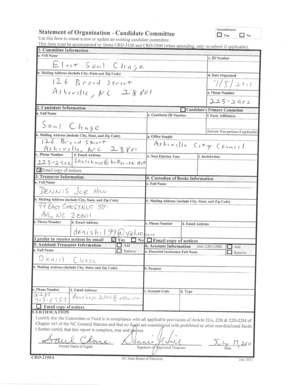 Amendment
Yes No
Statement of Organization - Candidate Committee
Use this form to create a new or update an existing candidate committee.
This form must be accompanied by forms CRO-3100 and CRO-3500 (when amending, only re-submit if applicable).
1. Committee Information
a. Full Name
c. ID Number
Elect Saul Chase
b. Mailing Address (include City, State and Zip Code)
d. Date Organized
126 Broad Street
7/5/2011
Asheville, NC 28801
e. Phone Number
225-2902
2. Candidate Information
Candidate's Primary Committee
a. Full Name
c. Candidate ID Number
f. Party Affiliation
Saul Chase
b. Mailing Address (include City, State and Zip Code)
g. Office Sought
126 Broad Street
Asheville, NC 28801
Asheville City Council
c. Phone Number
d. Email Address
h. Next Election Year
i. Jurisdiction
Email copy of notices
3. Treasurer Information
4. Custodian of Books Information
a. Full Name
a. Full Name
DENNIS JOE
b. Mailing Address (include City, State and Zip Code)
b. Mailing Address (include City, State and Zip Code)
CHESTNUT ST
c. Phone Number
d. Email Address
c. Phone Number
d. Email Address
I prefer to receive notices by email
Yes No
Email copy of notices
5. Assistant Treasurer Information
Add
6. Account Information
Add
a. Full Name
Remove
a. Financial Institution Full Name
Remove
b. Mailing Address (include City, State and Zip Code)
b. Purpose
c. Phone Number
d. Email Address
c. Account Code
d. Type
Email copy of notices
CERTIFICATION
I certify that the Committee or Fund is in compliance with all applicable provisions of Article 22A, 22B & 22D-22M of
Chapter 163 of the NC General Statutes and that no funds are commingled with prohibited or other non-disclosed funds.
I further certify that this report is complete, true and correct.
Saul Chase
Printed Name of Signer
Signature of Appointed Treasurer
Date
CRO-2100A
NC State Board of Elections